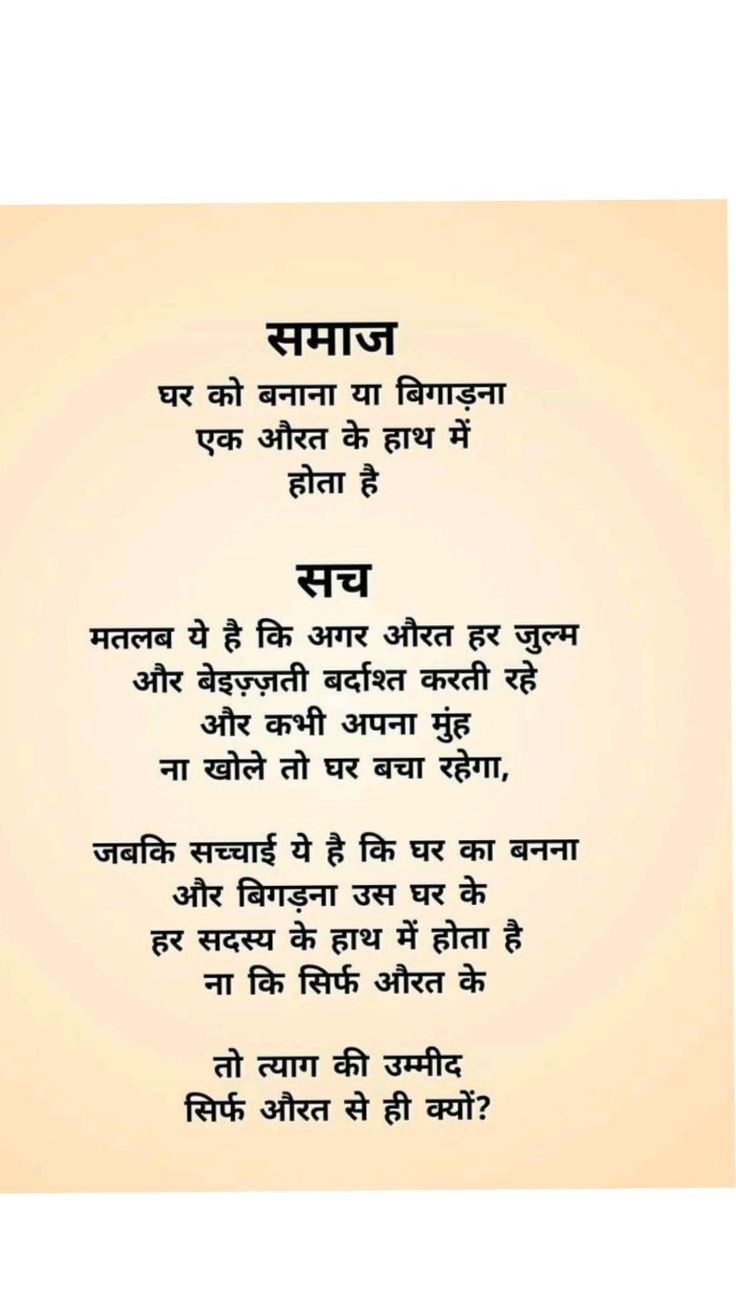 समाज
घर को बनाना या बिगाड़ना
एक औरत के हाथ में
होता है
सच
मतलब ये है कि अगर औरत हर जुल्म
और बेइज़्ज़ती बर्दाश्त करती रहे
और कभी अपना मुंह
ना खोले तो घर बचा रहेगा,
जबकि सच्चाई ये है कि घर का बनना
और बिगड़ना उस घर के
हर सदस्य के हाथ में होता है
ना कि सिर्फ औरत के
तो त्याग की उम्मीद
सिर्फ औरत से ही क्यों?